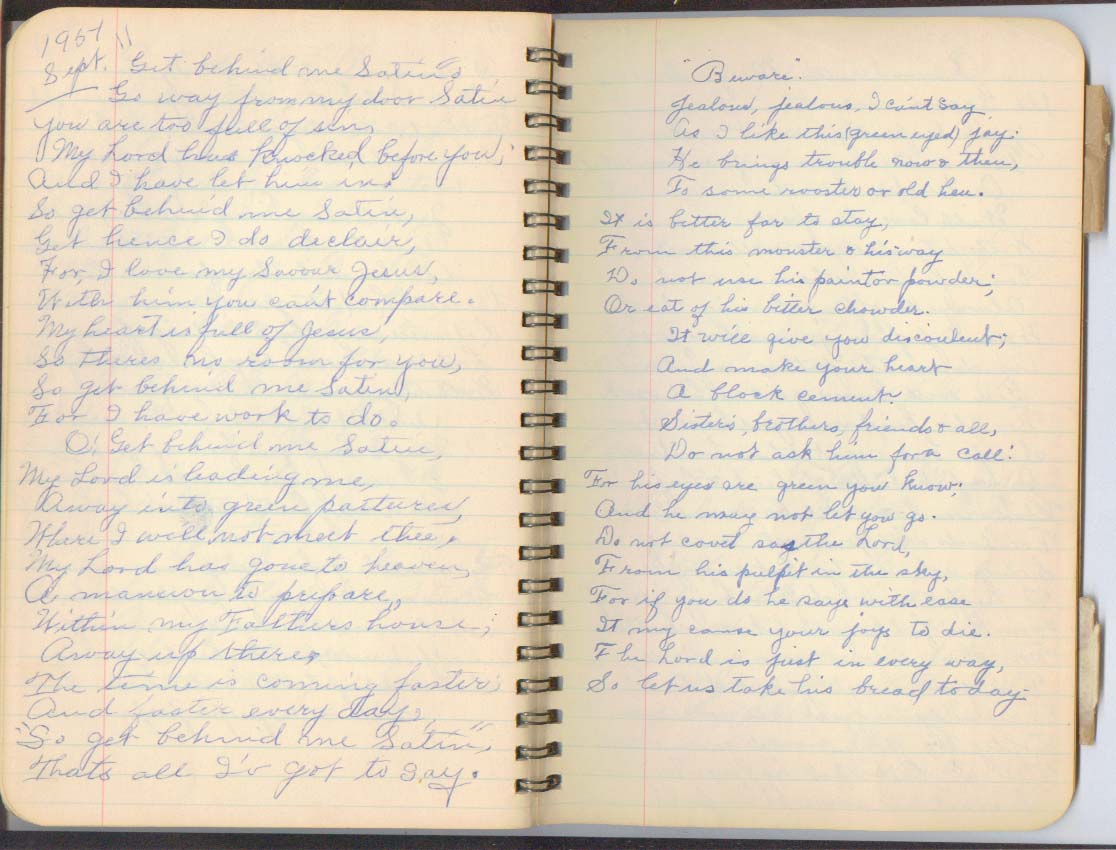 1957 "
Sept. Get behind me Satin.
Go way from my door Satin
you are too full of sin,
My Lord has knocked before you;
And I have let him in.
So get behind me Satin,
Get hence I do declair,
For, I love my Savour Jesus,
With him you can't compare.
My heart is full of Jesus,
So theres no room for you,
So get behind me Satin,
For I have work to do.
O! Get behind me Satin,
My Lord is leading me,
Away into green pattures,
Where I will not meet thee.
My Lord has gone to heaven,
A mansion to prepare,
Within my Fathers house;
Away up there.
The time is coming faster;
And faster every day,
"So get behind me Satin",
Thats all I'v got to say.
"Beware".
Jealous, jealous, I can't say
As I like this (green eyed) jay.
He brings trouble now & then,
To some rooster or old hen.
It is bitter far to stay,
From this monster & his way
Do not use his paint or powder;
Or eat of his bitter chowder.
It will give you discontent;
And make your heart
A block cement.
Sisters, brothers, friends & all,
Do not ask him for a call!
For his eyes are green you know;
And he may not let you go.
Do not covet says the Lord,
From his pulpit in the sky,
For if you do he says with ease
It my cause your joys to die.
The Lord is just in every way,
So let us take his bread today-